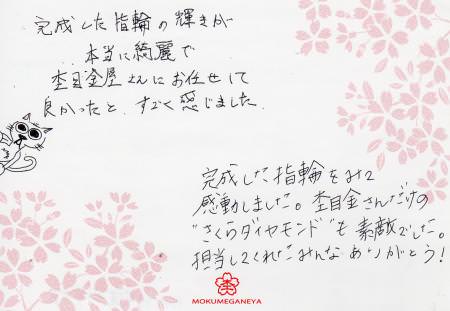 完成した指輪の輝きが
本当に綺麗で
杢目金屋さんにお任せして
良かったと、すごく感じました。
完成した指輪をみて
感動しました。杢目金さんだけの
"さくらダイヤモンド"も素敵でした。
担当してくれたみんなありがとう!
杢
MOKUMEGANEYA